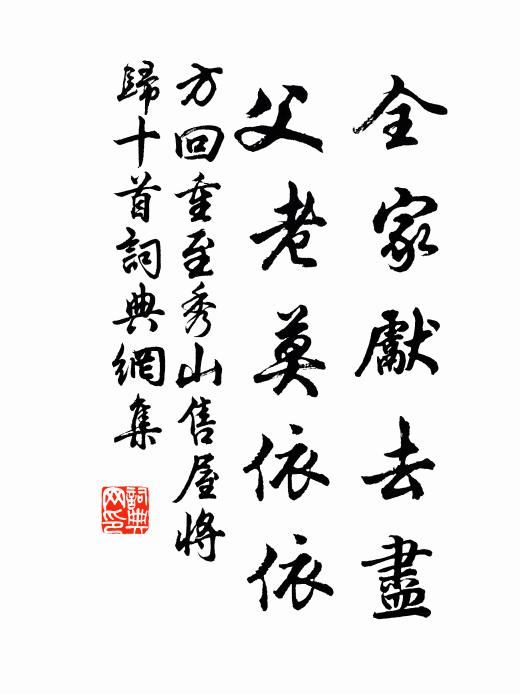 全家獻去盡
父老莫依依
方回重至秀山售屋將
歸十首詞典網集
詞典
网印